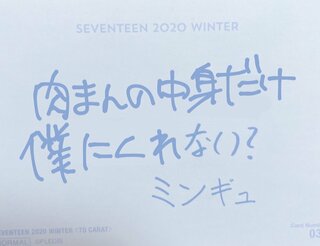 SEVENTEEN 2020 WINTER
肉まんの中身だけ
僕にくれない？
ミンギュ
SEVENTEEN 2020 WINTER 'TO CARAT'
Card Numb
03